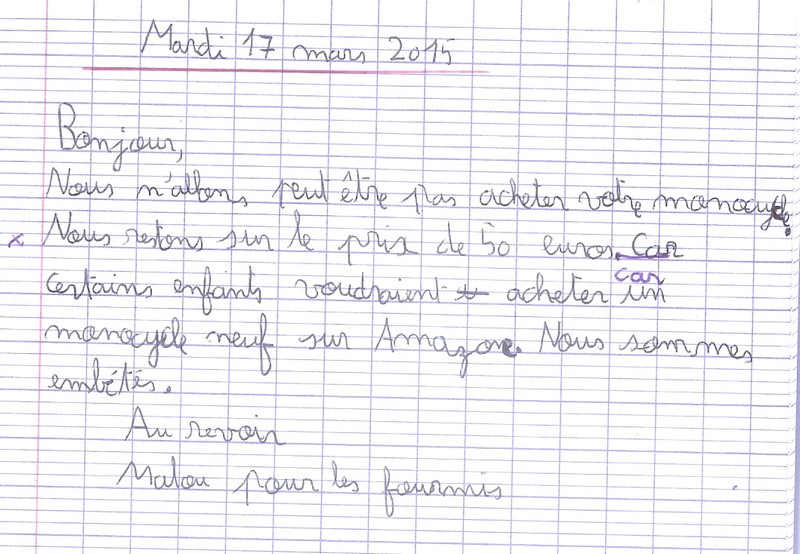 Mardi 17 mars 2015
Bonjour,
Nous n'allons peut être pas acheter votre monocycle.
x Nous restons sur le prix de 50 euros. Car
car
certains enfants voudraient acheter un
monocycle neuf sur Amazone. Nous sommes
embétés.
Au revoir
Malou pour les fourmis